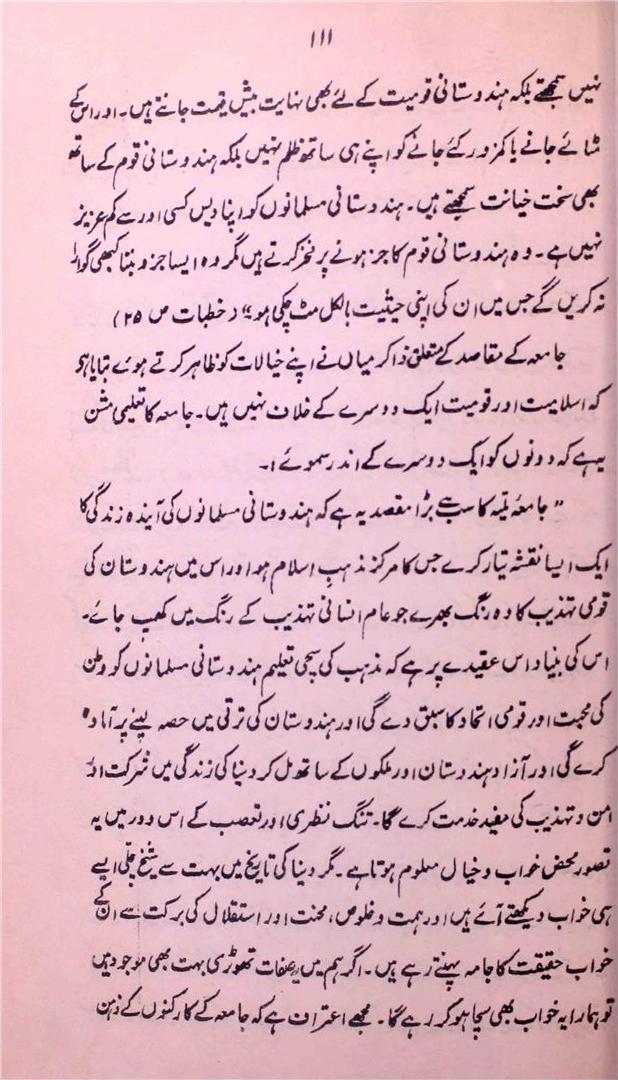 ۱۱۱
نہیں سمجھتے بلکہ ہندوستانی قومیت کے لئے بھی نہایت بیش قیمت جانتے ہیں۔ اور اس کے
مٹائے جانے یا کمزور کئے جانے کو اپنے ہی ساتھ ظلم نہیں بلکہ ہندوستانی قوم کے ساتھ
بھی سخت خیانت سمجھتے ہیں۔ ہندوستانی مسلمانوں کو اپنا دیس کسی اور سے کم عزیز
نہیں ہے۔ وہ ہندوستانی قوم کا جز ہونے پر فخر کرتے ہیں مگر وہ ایسا جزو بننا کبھی گوارا
نہ کریں گے جس میں ان کی اپنی حیثیت بالکل مٹ چکی ہو" (خطبات ص ۲۵)
جامعہ کے مقاصد کے متعلق ذاکر میاں نے اپنے خیالات کو ظاہر کرتے ہوئے بتایا ہو
کہ اسلامیت اور قومیت ایک دوسرے کے خلاف نہیں ہیں۔ جامعہ کا تعلیمی مشن
یہ ہے کہ دونوں کو ایک دوسرے کے اندر سموئے۔
" جامعہ ملیہ کا سب سے بڑا مقصد یہ ہے کہ ہندوستانی مسلمانوں کی آیندہ زندگی کا
ایک ایسا نقشہ تیار کرے جس کا مرکز مذہب اسلام ہو اور اس میں ہندوستان کی
قومی تہذیب کا وہ رنگ بھرے جو عام انسانی تہذیب کے رنگ میں کھپ جائے۔
اس کی بنیاد اس عقیدے پر ہے کہ مذہب کی سچی تعلیم ہندوستانی مسلمانوں کو وطن
کی محبت اور قومی اتحاد کا سبق دے گی اور ہندوستان کی ترقی میں حصہ لینے پر آمادہ
کرے گی اور آزاد ہندوستان اور ملکوں کے ساتھ مل کر دنیا کی زندگی میں شرکت اور
امن و تہذیب کی مفید خدمت کرے گا۔ تنگ نظری اور تعصب کے اس دور میں یہ
تصور محض خواب و خیال معلوم ہوتا ہے۔ مگر دنیا کی تاریخ میں بہت سے شیخ چلی ایسے
ہی خواب دیکھتے آئے ہیں اور ہمت و خلوص، محنت اور استقلال کی برکت سے ان کے
خواب حقیقت کا جامہ پہنتے رہے ہیں۔ اگر ہم میں یہ صفات تھوڑی بہت بھی موجود ہیں
تو ہمارا یہ خواب بھی سچا ہو کر رہے گا۔ مجھے اعتراف ہے کہ جامعہ کے کارکنوں کے ذہن